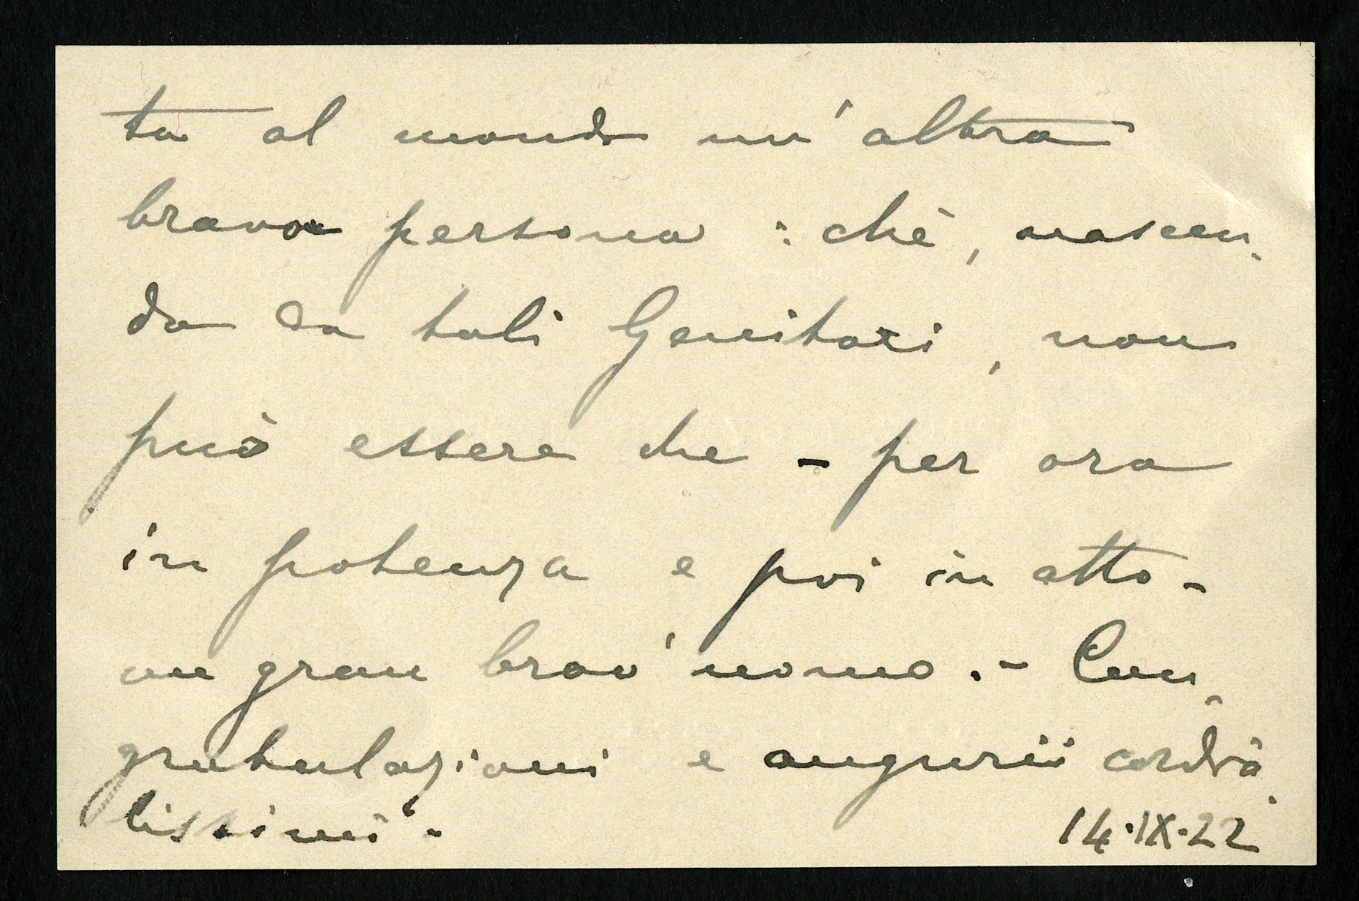 ta al mondo un'altra
brava persona: ché, nascen-
do da tali Genitori, non
può essere che - per ora
in potenza e poi in atto -
un gran brav'uomo. - Con-
gratulazioni e augurii cordia-
lissimi.
14.IX.22